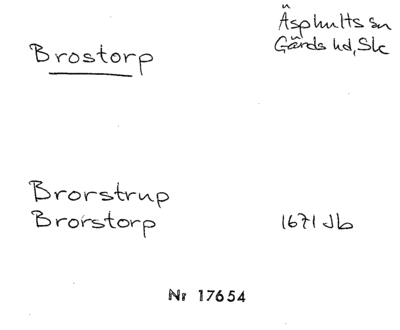 Brostorp
Äsphults sn
Gärds hd, Sk
Brorstrup
Brorstorp 1671 Jb
Nr 17654